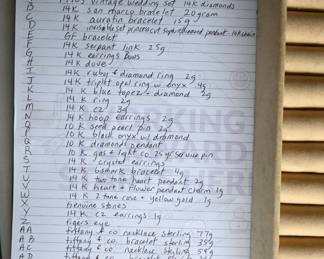 B 1940s vintage wedding set 14K diamonds
C 14K san marco bracelet 20 gram
D 14K auratin bracelet 15g
E 14K princess cut pendant 14K chain
F GF bracelet
14K serpent link 25g
G 14K earrings bows
H 14K dove
I 14K ruby + diamond ring 2g
J 14K triplet opal ring w onyx 4g
K 14K blue topaz + diamond 2g
L 14K ring 2g
M 14K cz 3g
N 14K hoop earrings 2g
O 10K seed pearl pin 2g
P 10K black onyx w/ diamond
Q 10K diamonds pendant
R 10K gas + light co. 25 yr service pin
S 14K crystal earrings
T 14K bismark bracelet 4g
U 14K two tone heart pendant 2g
V 14K heart + flower pendant charm 1g
W 14K 2 tone rose + yellow gold 1g
X genuine stones
Y 14K cz earrings 1g
Z tigers eye
AA tiffany & co necklace sterling 77g
AB tiffany & co. bracelet sterling 35g
AC tiffany & co. necklace sterling
AD tiffany & co. bracelet